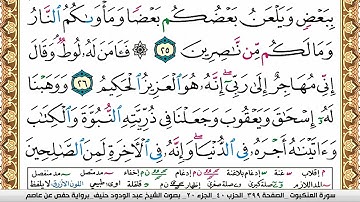 بِبَعْضٍ وَيَلْعَنُ بَعْضُكُم بَعْضًا وَمَأْوَىٰكُمُ ٱلنَّارُ
وَمَا لَكُم مِّن نَّٰصِرِينَ ٢٥ ۞ فَـَٔامَنَ لَهُۥ لُوطٌ وَقَالَ
إِنِّى مُهَاجِرٌ إِلَىٰ رَبِّىٓ إِنَّهُۥ هُوَ ٱلْعَزِيزُ ٱلْحَكِيمُ ٢٦ وَوَهَبْنَا
لَهُۥٓ إِسْحَٰقَ وَيَعْقُوبَ وَجَعَلْنَا فِى ذُرِّيَّتِهِ ٱلنُّبُوَّةَ وَٱلْكِتَٰبَ
وَءَاتَيْنَٰهُ أَجْرَهُۥ فِى ٱلدُّنْيَا وَإِنَّهُۥ فِى ٱلْـَٔاخِرَةِ لَمِنَ ٱلصَّٰلِحِينَ
سورة العنكبوت الصفحة ٣٩٩ الحزب ٤٠ الجزء ٢٠ بصوت الشيخ عبد الودود حنيف برواية حفص عن عاصم